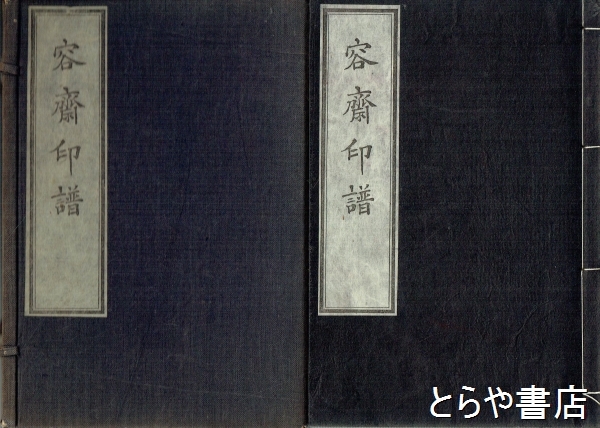 容齋印譜
容齋印譜
とらや書店